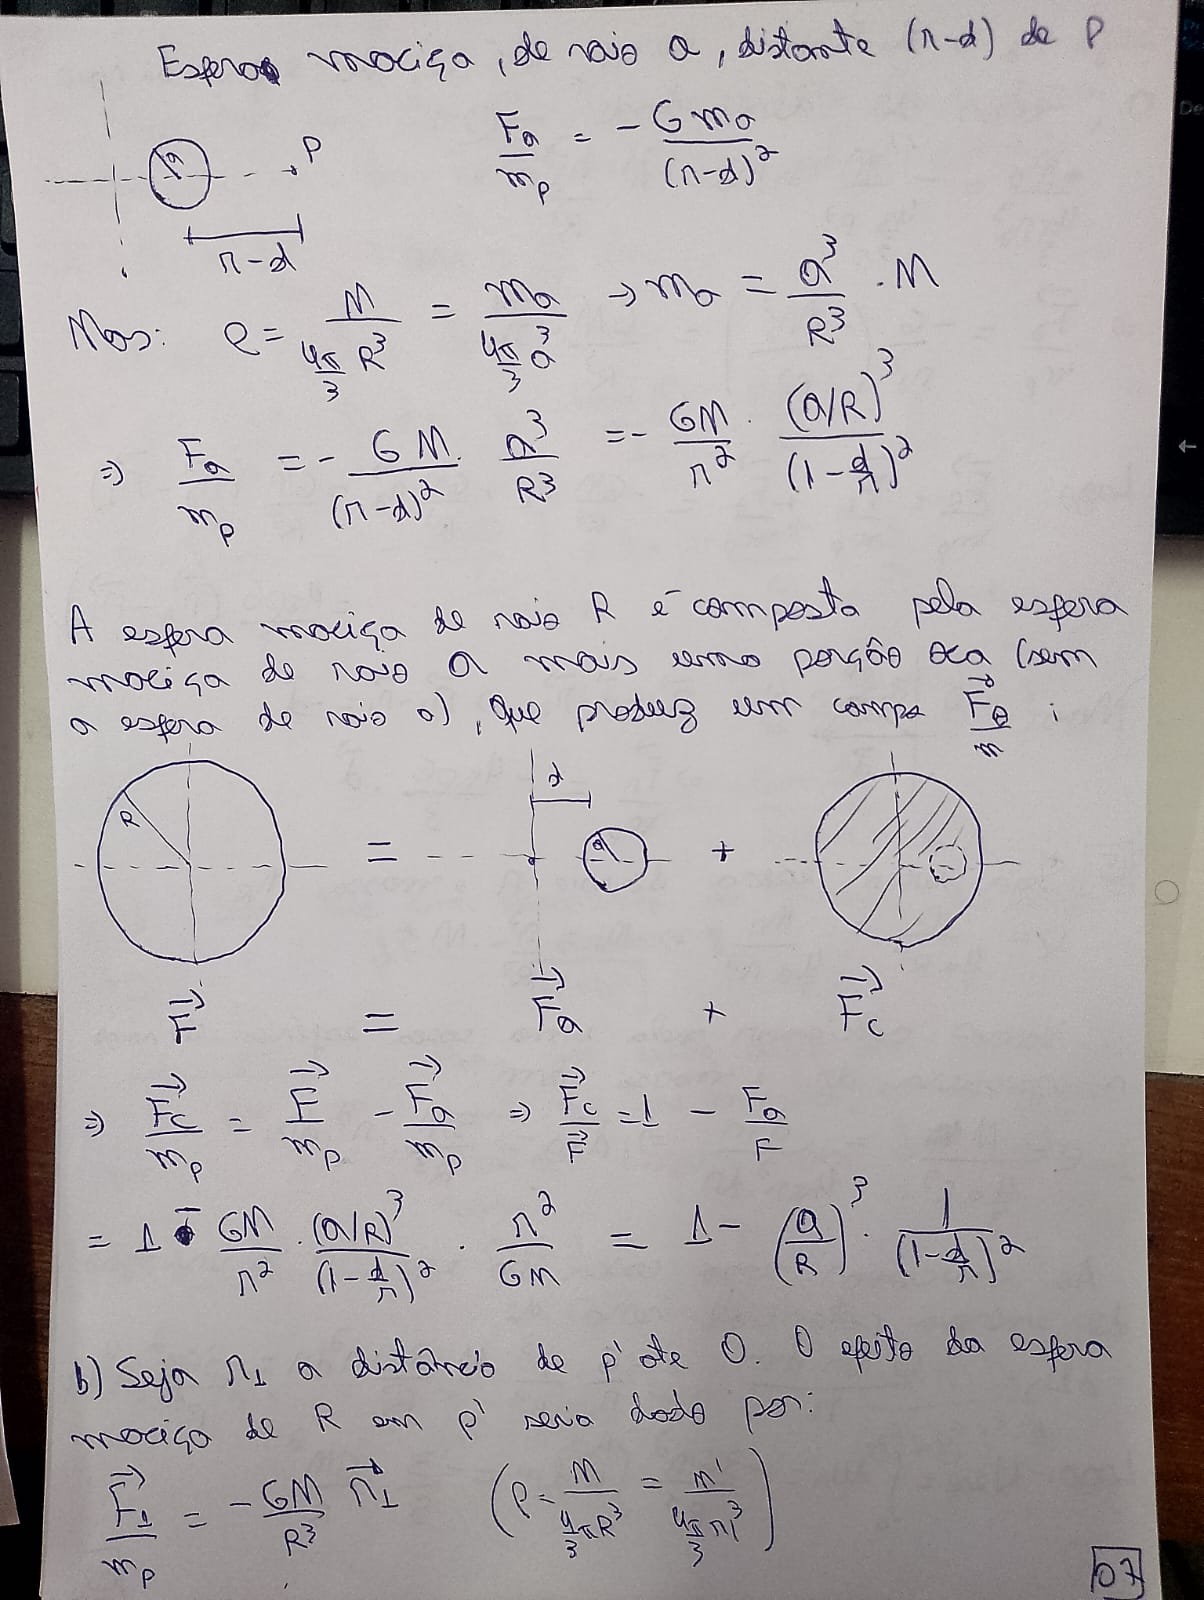 Esfera maciça, de raio a, distante (r-d) de P
a P
F_a/m_p = - G m_a/(r-d)²
r-d
Mas: ρ = M/(4π/3 R³) = m_a/(4π/3 a³) → m_a = a³/R³ . M
⇒ F_a/m_p = - G M/(r-d)² . a³/R³ = - GM/r² . (a/R)³/(1-d/r)²
A esfera maciça de raio R é composta pela esfera
maciça de raio a mais uma porção oca (sem
a esfera de raio a), que produz um campo F⃗_c/m :
R = d a +
F⃗ = F⃗_a + F⃗_c
⇒ F⃗_c/m_p = F⃗/m_p - F⃗_a/m_p ⇒ F⃗_c/F⃗ = 1 - F_a/F
= 1 - GM/r² . (a/R)³/(1-d/r)² . r²/GM = 1 - (a/R)³ . 1/(1-d/r)²
b) Seja r₁ a distância de p' até O. O efeito da esfera
maciça de R em p' seria dado por:
F⃗₁/m_p = - GM/R³ r⃗₁ (ρ = M/(4/3 πR³) = m'/(4π/3 r₁³))
07